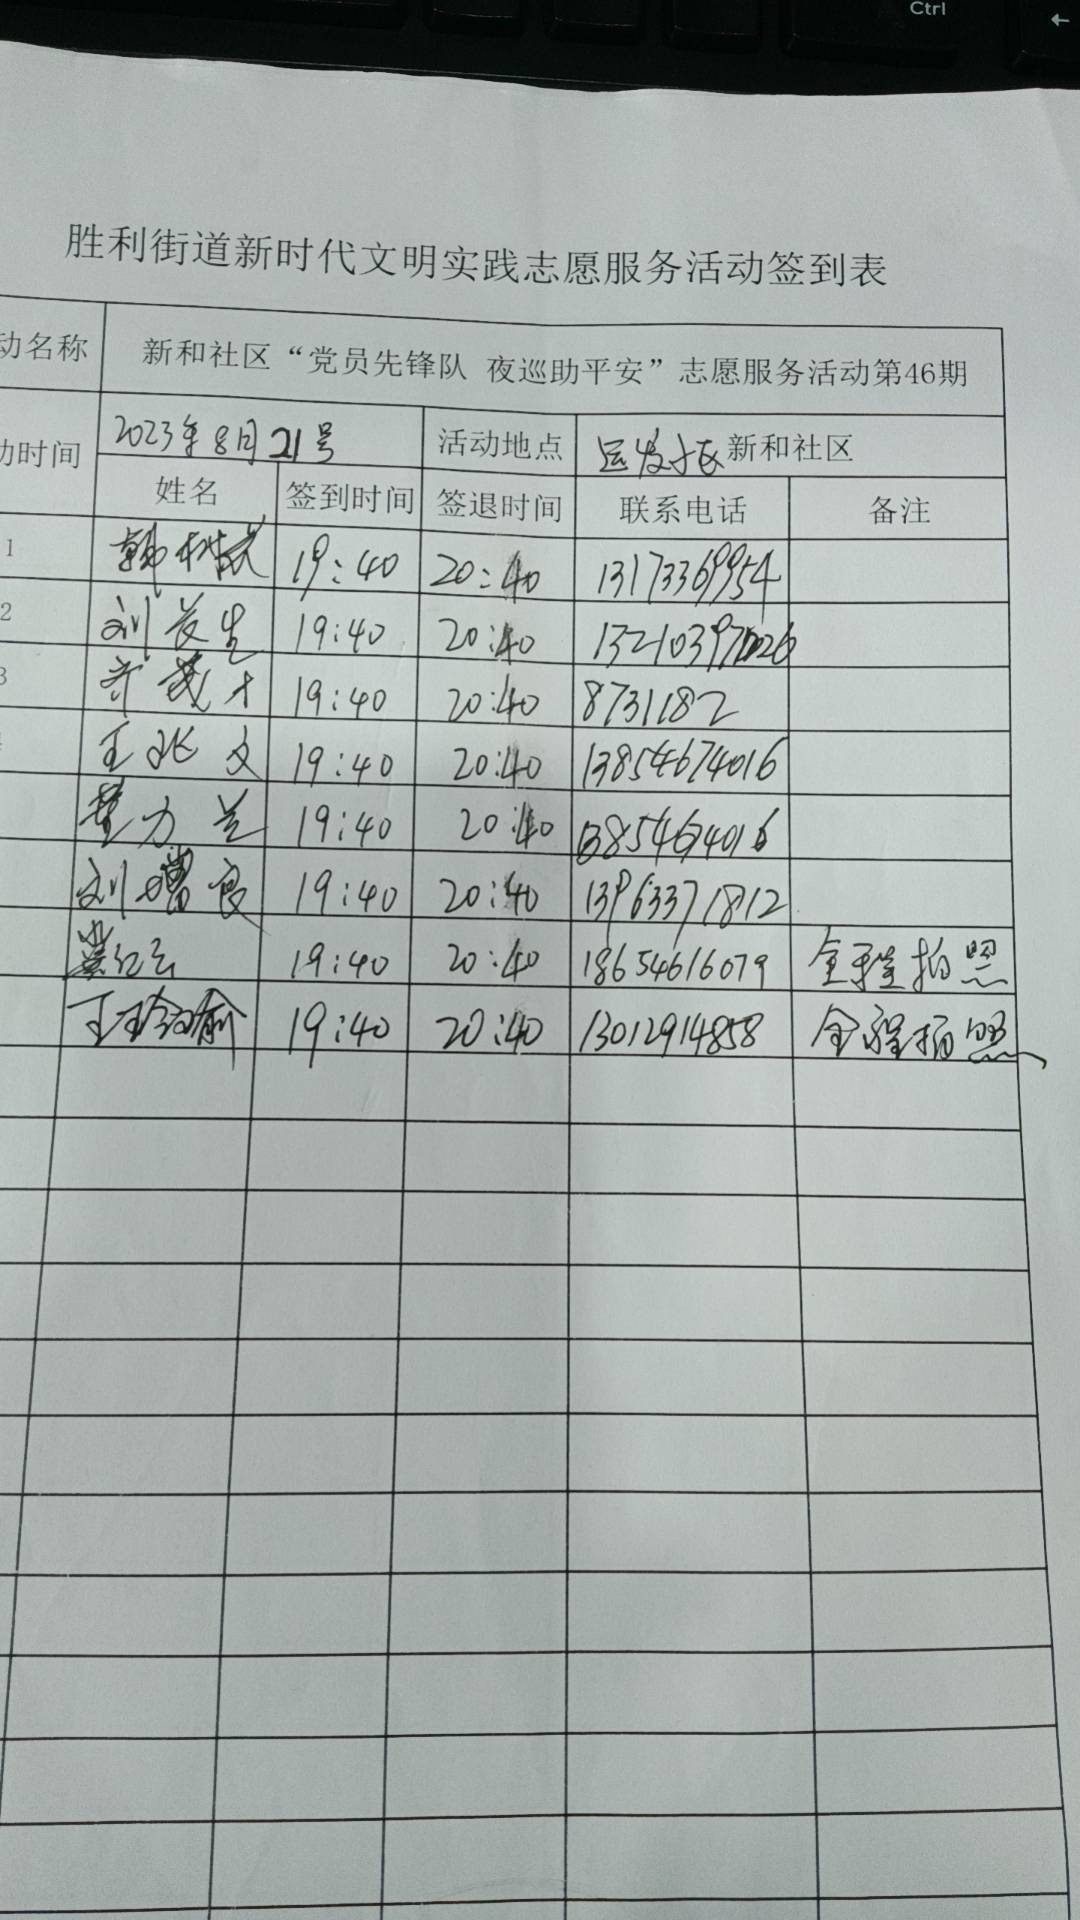 Ctrl
胜利街道新时代文明实践志愿服务活动签到表
动名称 新和社区“党员先锋队 夜巡助平安”志愿服务活动第46期
动时间 2023年8月21号 活动地点 运发小区 新和社区
姓名 签到时间 签退时间 联系电话 备注
1 19:40 20:40 13173369954
2 刘长生 19:40 20:40
3 齐茂才 19:40 20:40 8731182
王兆文 19:40 20:40 13854674016
19:40 20:40 13854674016
刘增良 19:40 20:40 13963371812
19:40 20:40 18654616079 全程拍照
19:40 20:40 13012914858 全程拍照